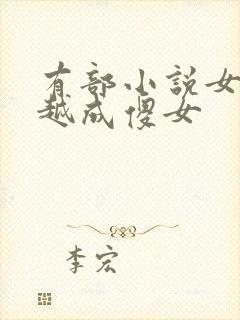 有部小説女
越成傻女
李宏